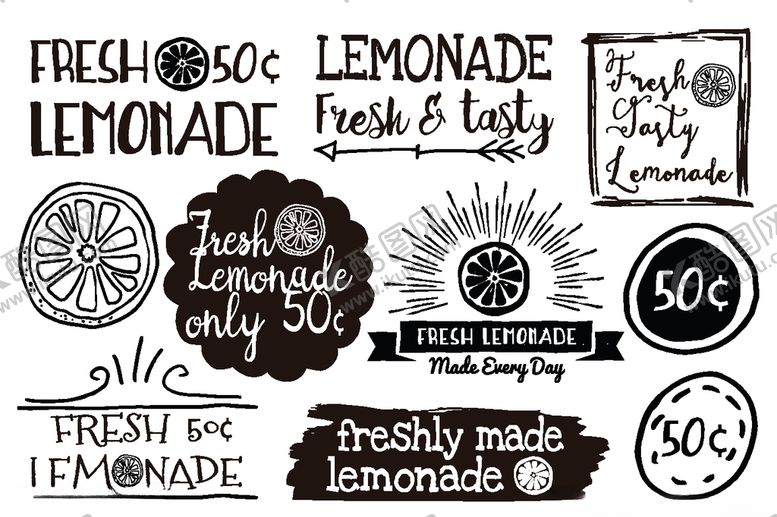 FRESH 50¢
LEMONADE
LEMONADE
Fresh & tasty
Fresh
Tasty
Lemonade
Fresh
Lemonade
only 50¢
FRESH LEMONADE
Made Every Day
50¢
FRESH 50¢
LEMONADE
freshly made
lemonade
50¢